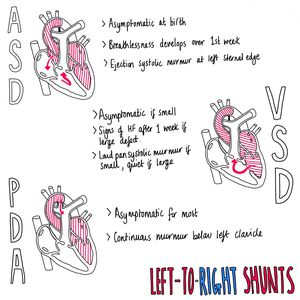 ASD
> Asymptomatic at birth
> Breathlessness develops over 1st week
> Ejection systolic murmur at left sternal edge
VSD
> Asymptomatic if small
> Signs of HF after 1 week if
large defect
> Loud pansystolic murmur if
small, quiet if large
PDA
> Asymptomatic for most
> Continuous murmur below left clavicle
LEFT-TO-RIGHT SHUNTS